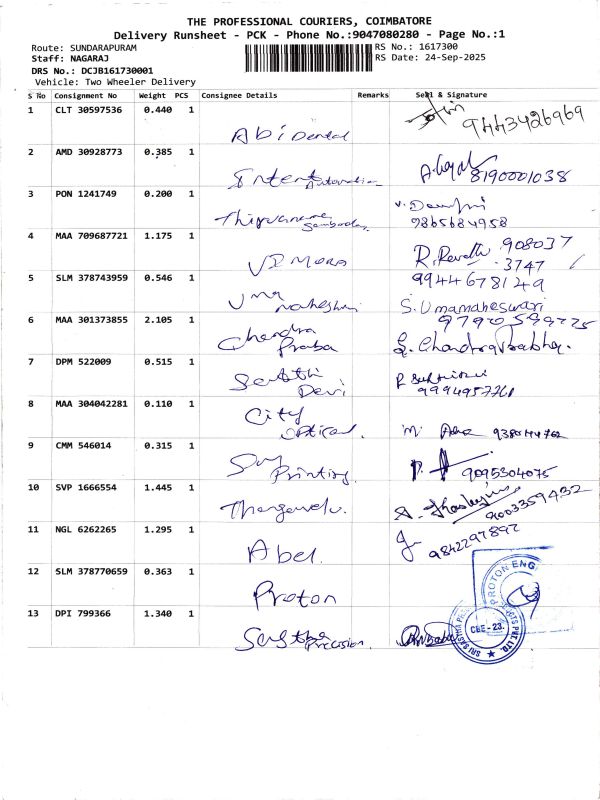 THE PROFESSIONAL COURIERS, COIMBATORE
Delivery Runsheet - PCK - Phone No.:9047080280 - Page No.:1
Route: SUNDARAPURAM RS No.: 1617300
Staff: NAGARAJ RS Date: 24-Sep-2025
DRS No.: DCJB161730001
Vehicle: Two Wheeler Delivery
S No Consignment No Weight PCS Consignee Details Remarks Seal & Signature
1 CLT 30597536 0.440 1
Abi Dental 9443426969
2 AMD 30928773 0.385 1
Intent Automation 8190001038
3 PON 1241749 0.200 1
Thiruvaname 9865684958
4 MAA 709687721 1.175 1
R. Revathi 908037
3747
5 SLM 378743959 0.546 1
9944678129
Uma Maheshwari S. Umamaheswari
6 MAA 301373855 2.105 1
Chandra Praba S. Chandraprabha.
7 DPM 522009 0.515 1
Sakthi Devi
8 MAA 304042281 0.110 1
City Optical
9 CMM 546014 0.315 1
Printing 9095304075
10 SVP 1666554 1.445 1
Thangavelu. 9003359432
11 NGL 6262265 1.295 1
Abel 9842297892
12 SLM 378770659 0.363 1
Proton PROTON ENG
13 DPI 799366 1.340 1
Sastha Precision CBE-23.